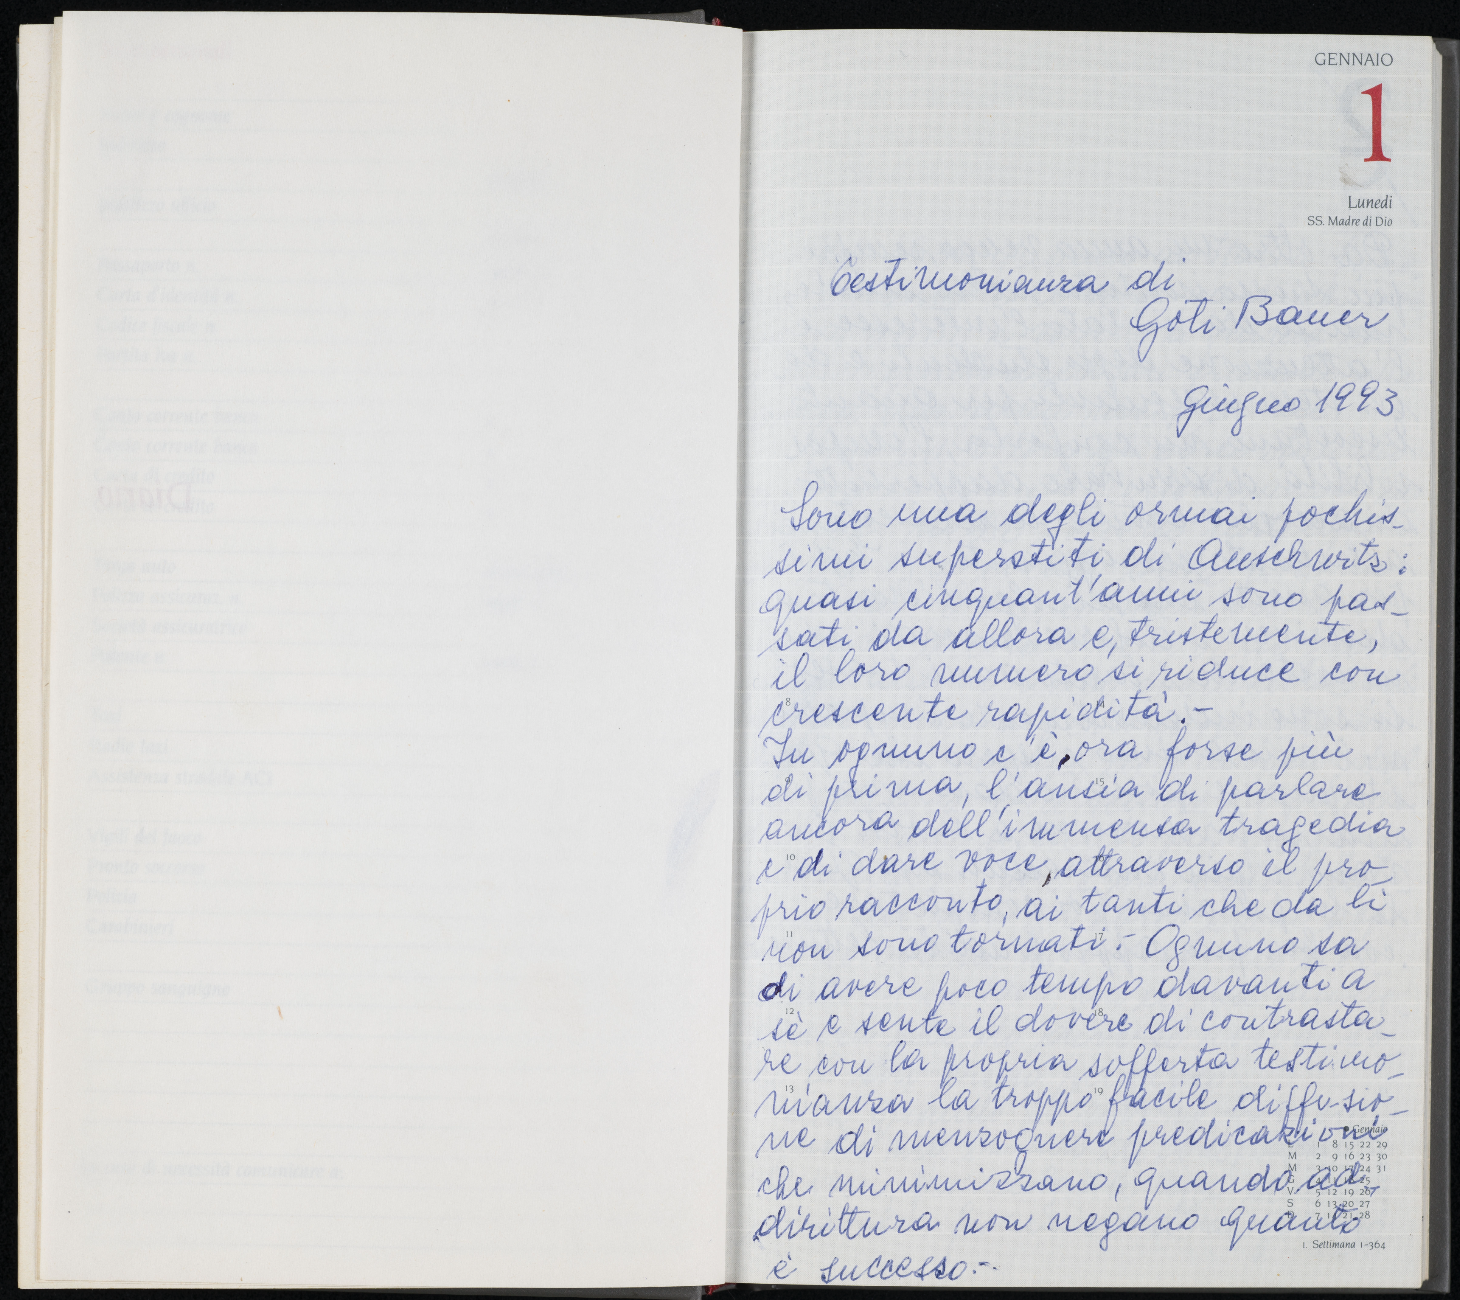 GENNAIO
1
Lunedì
SS. Madre di Dio
Testimonianza di
Goti Bauer
Giugno 1993
Sono una degli ormai pochis-
simi superstiti di Auschwitz:
quasi cinquant'anni sono pas-
sati da allora e, tristemente,
il loro numero si riduce con
crescente rapidità.-
In ognuno c'è, ora forse più
di prima, l'ansia di parlare
ancora dell'immensa tragedia
e di dare voce, attraverso il pro-
prio racconto, ai tanti che da lì
non sono tornati.- Ognuno sa
di avere poco tempo davanti a
sè e sente il dovere di contrasta-
re con la propria sofferta testimo-
nianza la troppo facile diffusio-
ne di menzognere predicazioni
che minimizzano, quando ad-
dirittura non negano quanto
è successo.-
Gennaio
1 8 15 22 29
M 2 9 16 23 30
M 3 10 17 24 31
S 6 13 20 27
1. Settimana 1-364